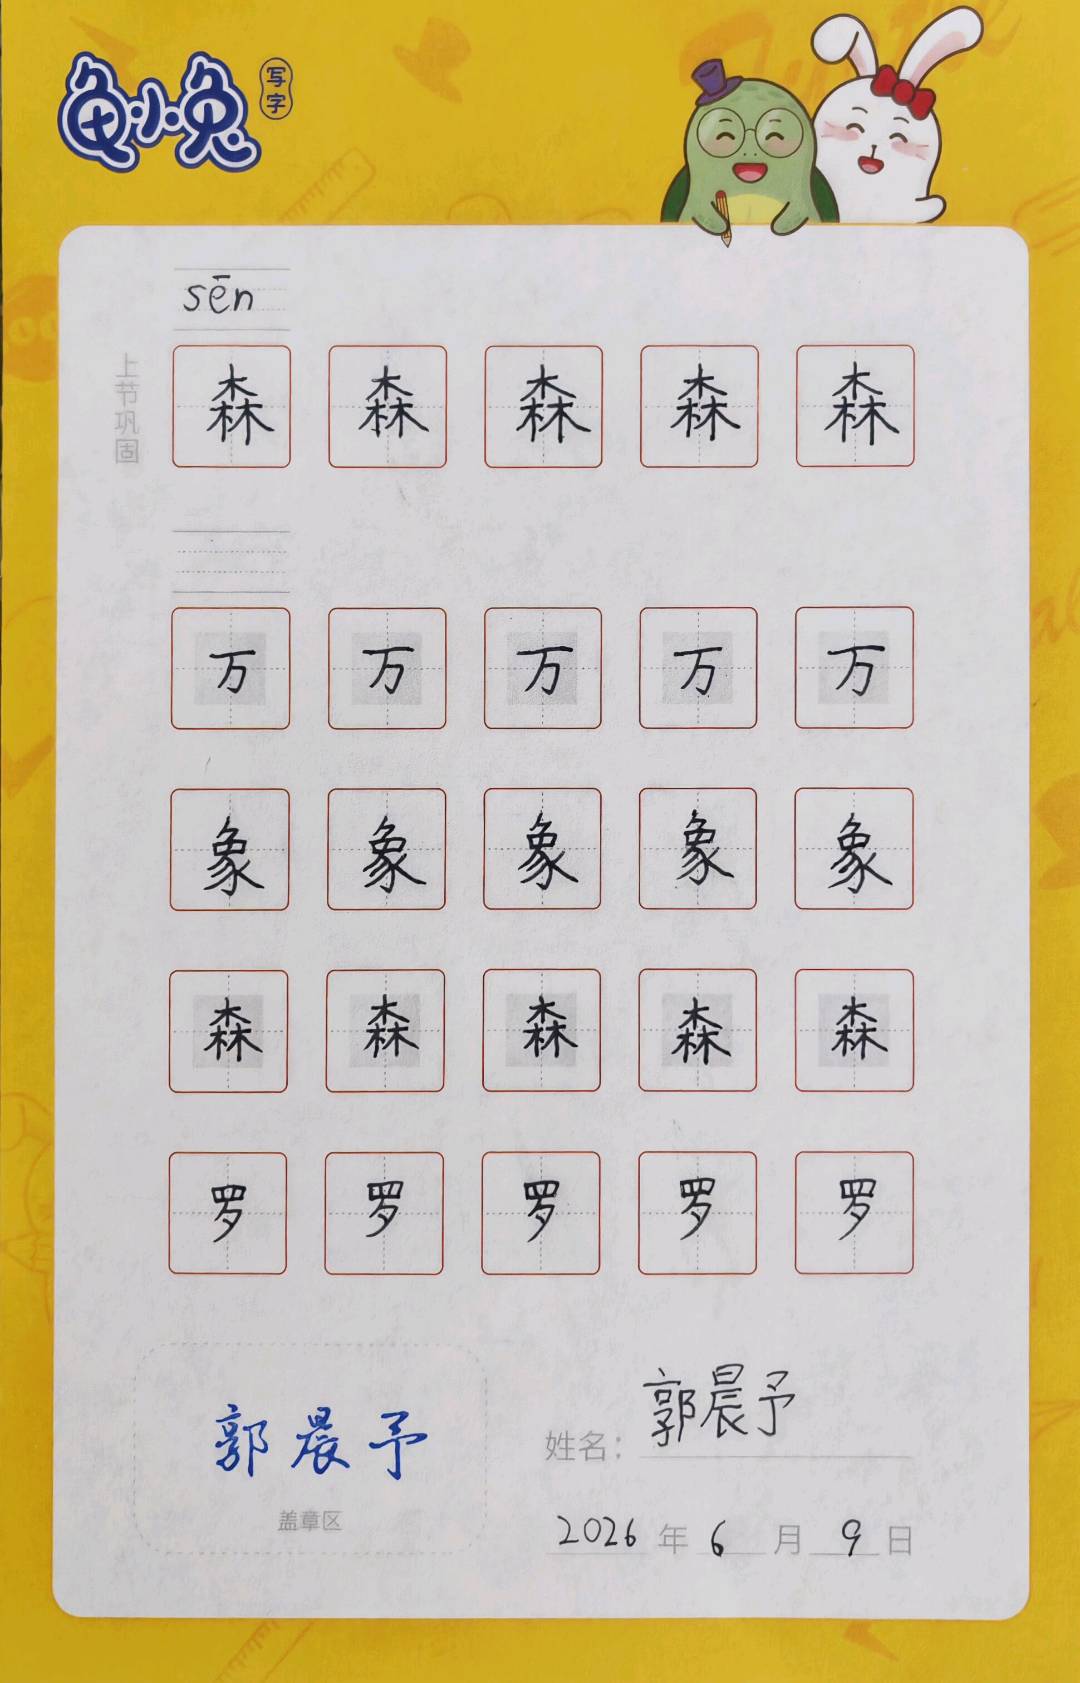 龟小兔 写字
sēn
上节巩固
森 森 森 森 森
万 万 万 万 万
象 象 象 象 象
森 森 森 森 森
罗 罗 罗 罗 罗
郭晨予
盖章区
姓名：郭晨予
2026年6月9日